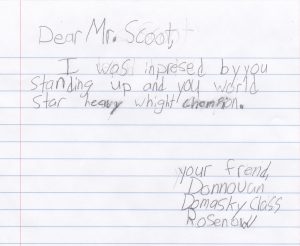 Dear Mr. Scoot,
I was inpresed by you
Standing up and you world
Star heavy whight chempion.
your frend,
Donnovan
Domasky Class
Rosenow